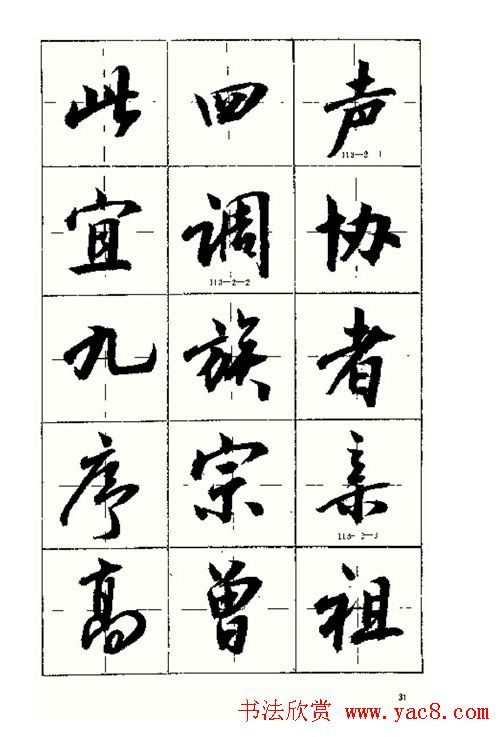 此四声
113—2 1
宜调协
113—2—2
九族者
序宗亲
113-2-3
高曾祖
31
书法欣赏 www.yac8.com